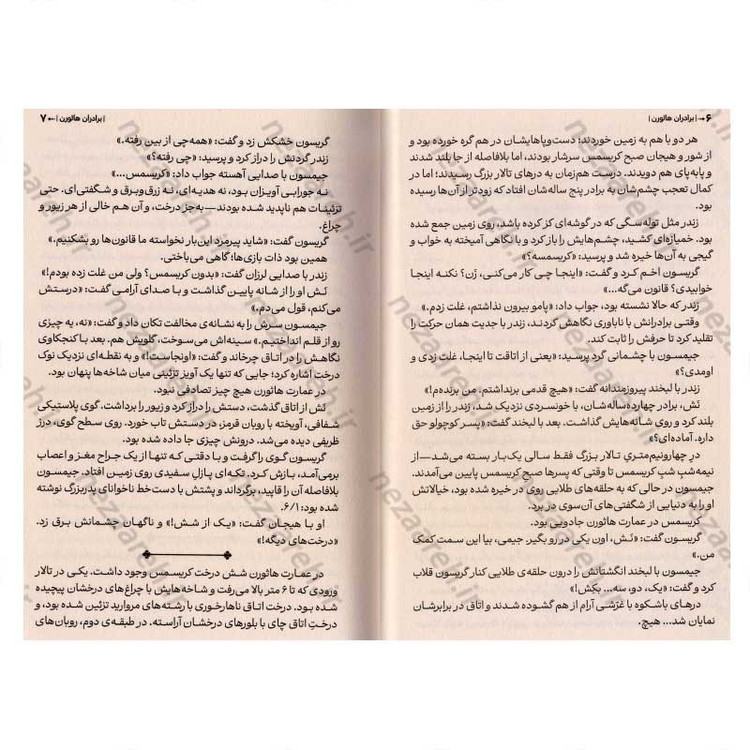 ۶ → | برادران هاثورن |
هر دو با هم به زمین خوردند: دست‌وپاهایشان در هم گره خورده بود و
از شور و هیجان صبح کریسمس سرشار بودند، اما بلافاصله از جا بلند شدند
و پابه‌پای هم دویدند. درست هم‌زمان به درهای تالار بزرگ رسیدند؛ اما در
کمال تعجب چشم‌شان به برادر پنج ساله‌شان افتاد که زودتر از آن‌ها رسیده
بود.
زندر مثل توله‌سگی که در گوشه‌ای کز کرده باشد، روی زمین جمع شده
بود. خمیازه‌ای کشید، چشم‌هایش را باز کرد و با نگاهی آمیخته به خواب و
گیجی به آن‌ها خیره شد و پرسید: «کریسمسه؟»
گریسون اخم کرد و گفت: «اینجا چی کار می‌کنی، زَن؟ نکنه اینجا
خوابیدی؟ قانون می‌گه...»
زندر که حالا نشسته بود، جواب داد: «پامو بیرون نذاشتم، غلت زدم.»
وقتی برادرانش با ناباوری نگاهش کردند، زندر با جدیت همان حرکت را
تقلید کرد تا حرفش را ثابت کند.
جیمسون با چشمانی گرد پرسید: «یعنی از اتاقت تا اینجا، غلت زدی و
اومدی؟»
زندر با لبخند پیروزمندانه گفت: «هیچ قدمی برنداشتم. من برنده‌م!»
نَش، برادر چهارده‌ساله‌شان، با خونسردی نزدیک شد، زندر را از زمین
بلند کرد و روی شانه‌هایش گذاشت. بعد با لبخند گفت: «پسر کوچولو حق
داره. آماده‌ای؟»
درِ چهارونیم‌متریِ تالار بزرگ فقط سالی یک‌بار بسته می‌شد—از
نیمه‌شبِ شبِ کریسمس تا وقتی که پسرها صبح کریسمس پایین می‌آمدند.
جیمسون در حالی که به حلقه‌های طلایی روی در خیره شده بود، خیالاتش
او را به دنیایی از شگفتی‌های آن‌سوی در برد.
کریسمس در عمارت هاثورن جادویی بود.
گریسون گفت: «نَش، اون یکی در رو بگیر. جیمی، بیا این سمت کمک
من.»
جیمسون با لبخند انگشتانش را درون حلقه‌ی طلایی کنار گریسون قلاب
کرد و گفت: «یک، دو، سه... بکش!»
درهای باشکوه با غژشی آرام از هم گشوده شدند و اتاق در برابرشان
نمایان شد... هیچ.
| برادران هاثورن | ← ۷
گریسون خشکش زد و گفت: «همه‌چی از بین رفته.»
زندر گردنش را دراز کرد و پرسید: «چی رفته؟»
جیمسون با صدایی آهسته جواب داد: «کریسمس...»
نه جورابی آویزان بود، نه هدیه‌ای، نه زرق‌وبرق و شگفتی‌ای. حتی
تزئینات هم ناپدید شده بودند—به‌جز درخت، و آن هم خالی از هر زیور و
چراغ.
گریسون گفت: «شاید پیرمرد این‌بار نخواسته ما قانون‌ها رو بشکنیم.»
همین بود ذات بازی‌ها؛ گاهی می‌باختی.
زندر با صدایی لرزان گفت: «بدون کریسمس؟ ولی من غلت زده بودم!»
نَش او را از شانه پایین گذاشت و با صدای آرامی گفت: «درستش
می‌کنم، قول می‌دم.»
جیمسون سرش را به نشانه‌ی مخالفت تکان داد و گفت: «نه، یه چیزی
رو از قلم انداختیم.» سینه‌اش می‌سوخت، گلویش هم. بعد با کنجکاوی
نگاهش را در اتاق چرخاند و گفت: «اونجاست!» و به نقطه‌ای نزدیک نوک
درخت اشاره کرد؛ جایی که تنها یک آویز تزئینی میان شاخه‌ها پنهان بود.
در عمارت هاثورن هیچ چیز تصادفی نبود.
نَش از اتاق گذشت، دستش را دراز کرد و زیور را برداشت. گوی پلاستیکی
شفافی، آویخته با روبان قرمز در دستش تاب خورد. روی سطح گوی، درز
ظریفی دیده می‌شد. درونش چیزی جا داده شده بود.
گریسون گوی را گرفت و با دقتی که تنها از یک جراح مغز و اعصاب
برمی‌آمد، بازش کرد. تکه‌ای پازلِ سفیدی روی زمین افتاد. جیمسون
بلافاصله آن را قاپید، برگرداند و پشتش با دست‌خط ناخوانای پدربزرگ نوشته
شده بود: ۶/۱.
او با هیجان گفت: «یک از شش!» و ناگهان چشمانش برق زد.
«درخت‌های دیگه!»
در عمارت هاثورن شش درخت کریسمس وجود داشت. یکی در تالار
ورودی که تا ۶ متر بالا می‌رفت و شاخه‌هایش با چراغ‌های درخشان پیچیده
شده بود. درخت اتاق ناهارخوری با رشته‌های مروارید تزئین شده بود، و
درختِ اتاق چای با بلورهای درخشان آراسته. در طبقه‌ی دوم، روبان‌های